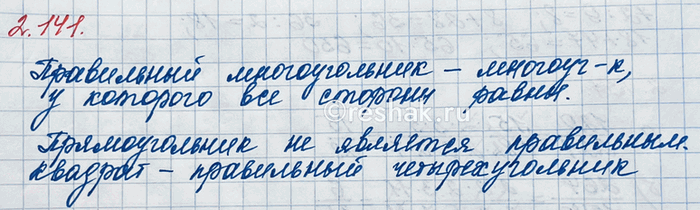 2.141.
Правильный многоугольник – многоуг-к,
у которого все стороны равны.
©reshak.ru
Прямоугольник не является правильным.
квадрат – правильный четырехугольник